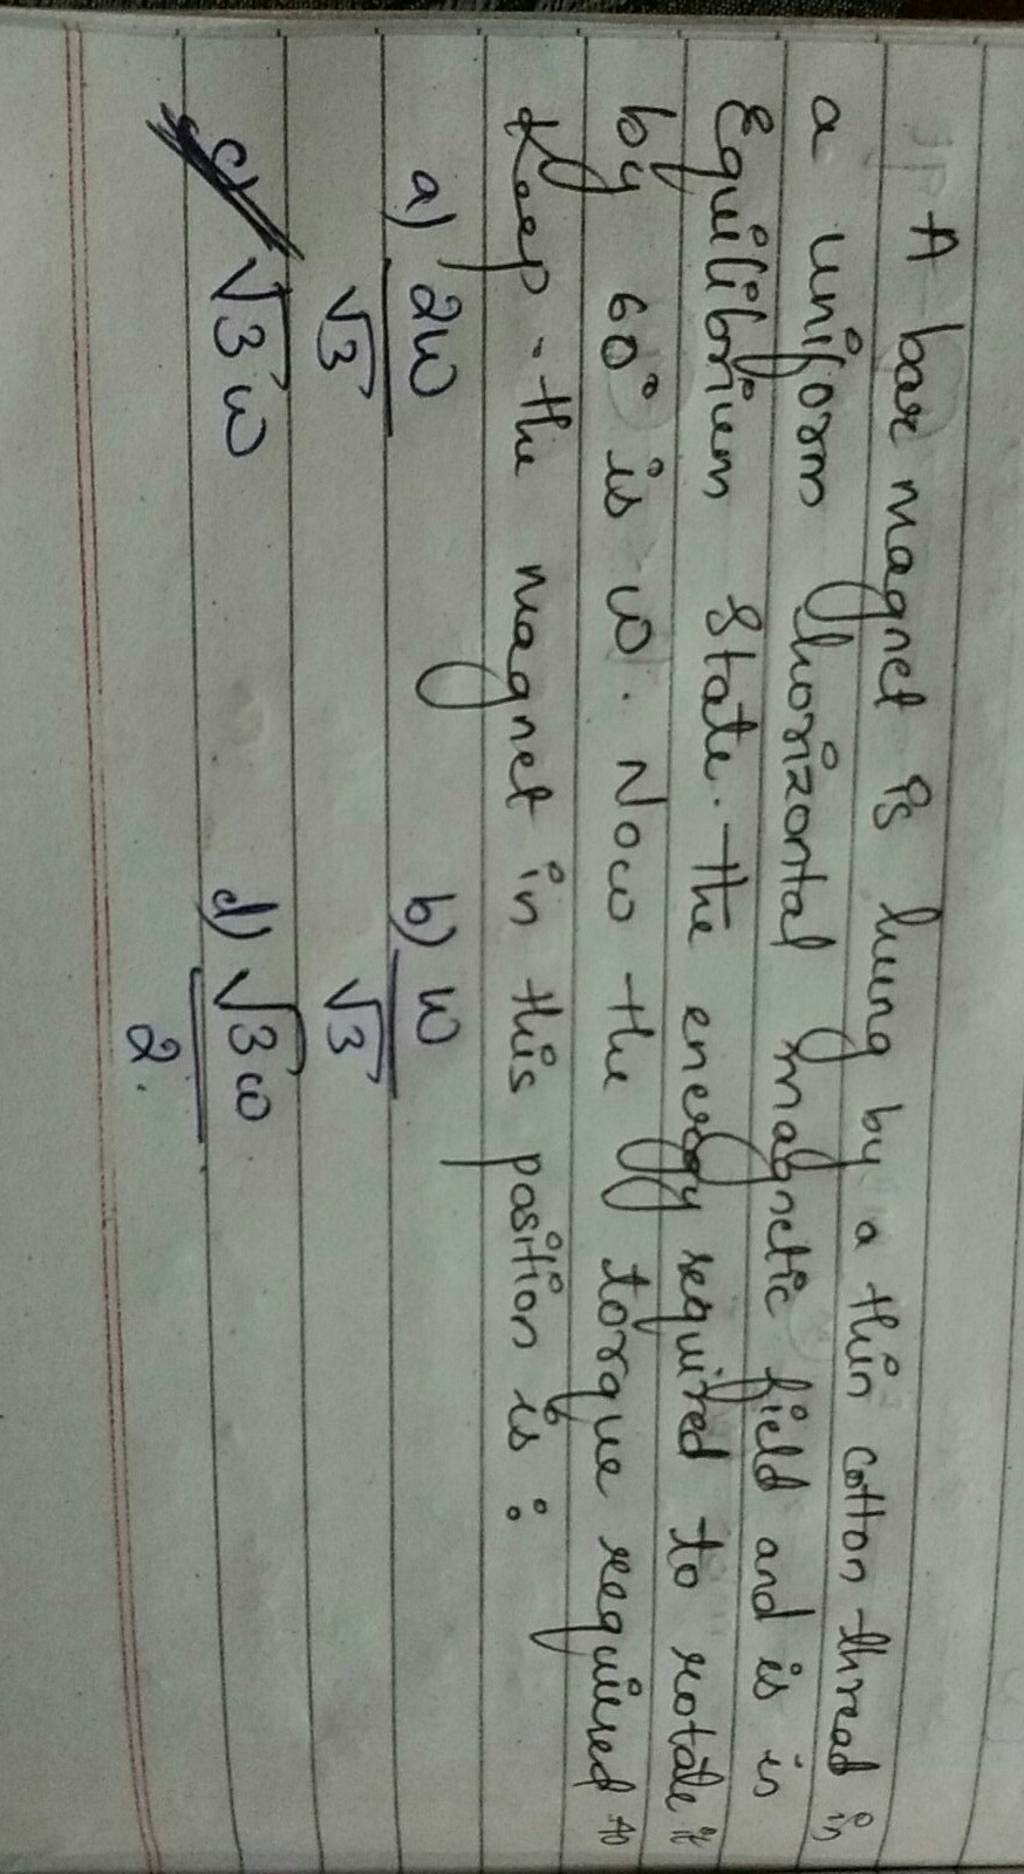 A bar magnet is hung by a thin cotton thread in
a uniform horizontal magnetic field and is in
Equilibrium State. The energy required to rotate it
by 60° is w. Now the torque required to
Keep the magnet in this position is :
a) 2w/√3 b) w/√3
c) √3 w d) √3 w/2.